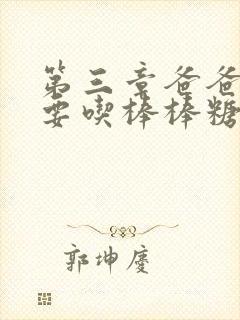 第三章爸爸
要喫棒棒糖
郭坤慶